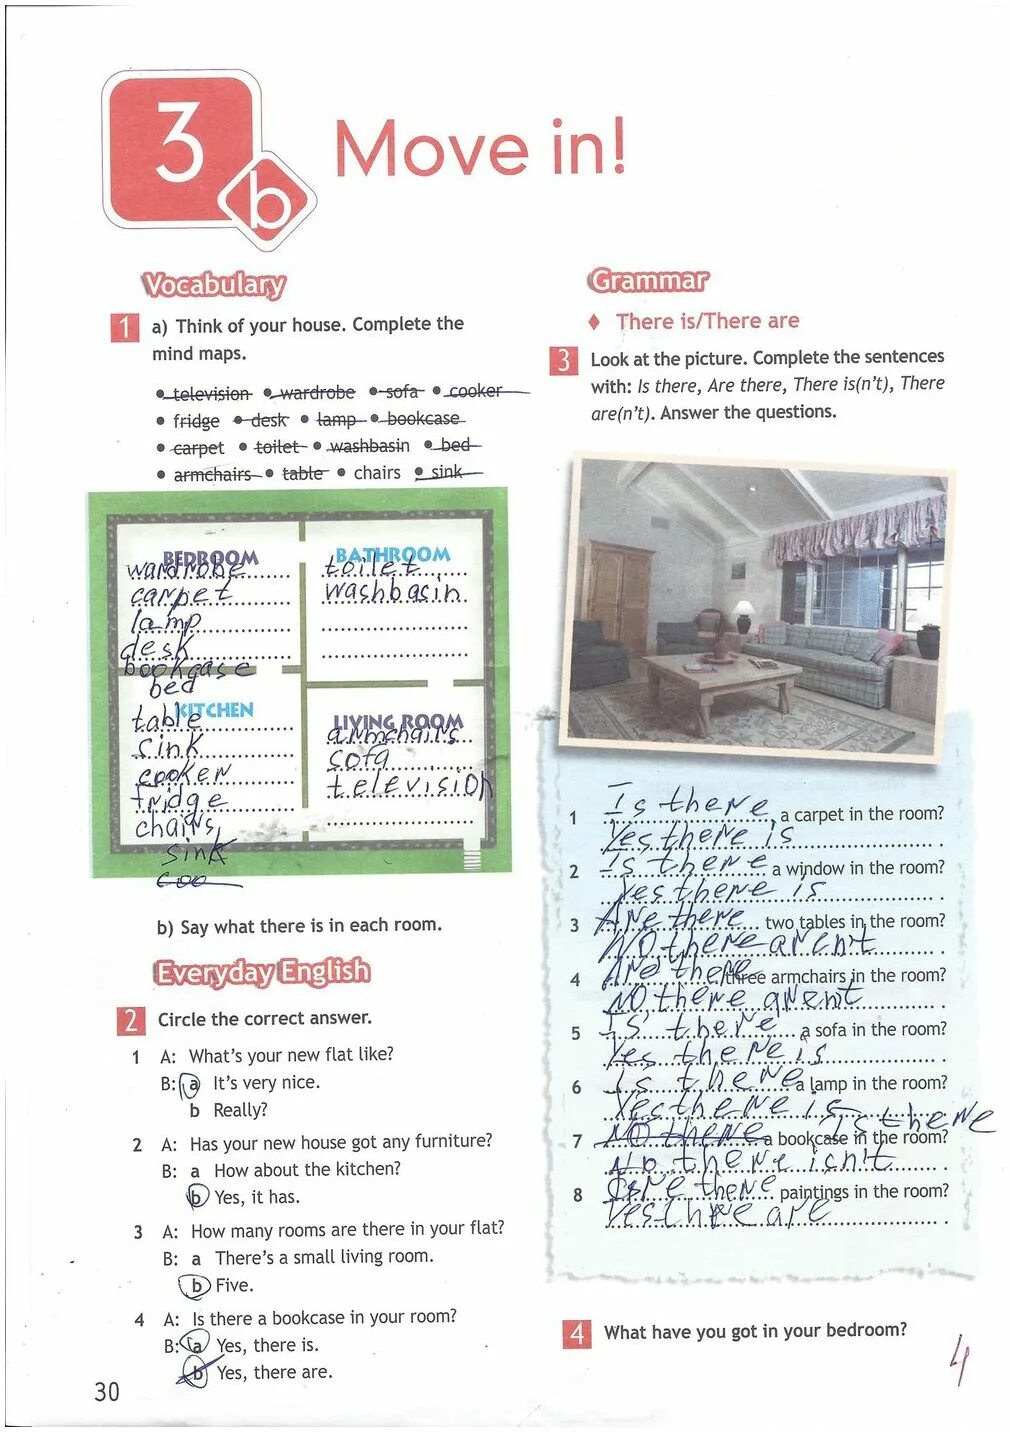 3
b
Move in!
Vocabulary
1 a) Think of your house. Complete the
mind maps.
• television • wardrobe • sofa • cooker
• fridge • desk • lamp • bookcase
• carpet • toilet • washbasin • bed
• armchairs • table • chairs • sink
BEDROOM
wardrobe
carpet
lamp
desk
bookcase
bed
BATHROOM
toilet
washbasin
KITCHEN
table
sink
cooker
fridge
chairs
sink
coo
LIVING ROOM
armchairs
sofa
television
b) Say what there is in each room.
Everyday English
2 Circle the correct answer.
1 A: What's your new flat like?
B: a It's very nice.
b Really?
2 A: Has your new house got any furniture?
B: a How about the kitchen?
b Yes, it has.
3 A: How many rooms are there in your flat?
B: a There's a small living room.
b Five.
4 A: Is there a bookcase in your room?
B: a Yes, there is.
b Yes, there are.
30
Grammar
♦ There is/There are
3 Look at the picture. Complete the sentences
with: Is there, Are there, There is(n't), There
are(n't). Answer the questions.
1 Is there a carpet in the room?
Yes there is
2 Is there a window in the room?
Yes there is
3 Are there two tables in the room?
NO, there aren't
4 Are there three armchairs in the room?
NO, there arent
5 Is there a sofa in the room?
Yes there is
6 Is there a lamp in the room?
Yes there is
Is there
7 NO there a bookcase in the room?
No there isn't
8 Are there paintings in the room?
Yes there are
4 What have you got in your bedroom?
4